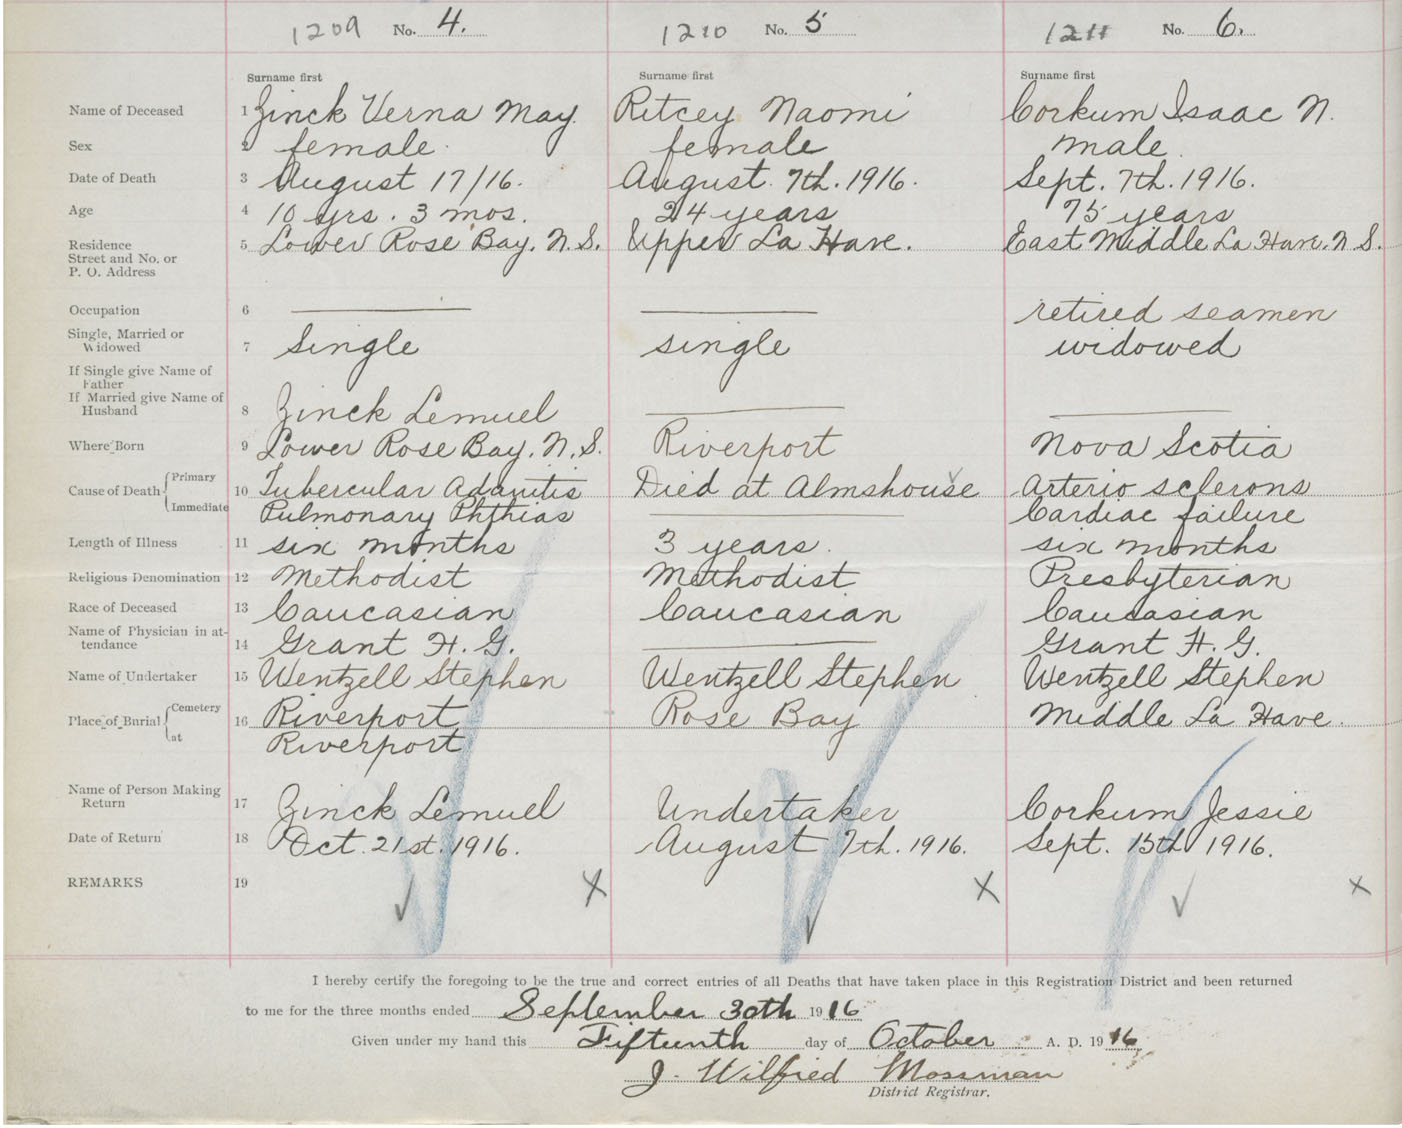 1209 No. 4. 1210 No. 5 1211 No. 6.
Surname first Surname first Surname first
Name of Deceased 1 Zinck Verna May. Ritcey Naomi Corkum Isaac N.
Sex 2 female. female male.
Date of Death 3 August 17/16. August. 7th. 1916. Sept. 7th. 1916.
Age 4 10 yrs. 3 mos. 24 years 75 years
Residence 5 Lower Rose Bay. N.S. Upper La Have. East Middle La Have. N.S.
Street and No. or
P. O. Address
Occupation 6 retired seamen
Single, Married or
Widowed 7 Single single widowed
If Single give Name of
Father
If Married give Name of
Husband 8 Zinck Lemuel
Where Born 9 Lower Rose Bay. N.S. Riverport Nova Scotia
Cause of Death Primary 10 Tubercular Adanitis Died at Almshouse Arterio sclerons
Immediate Pulmonary Phthias Cardiac failure
Length of Illness 11 six months 3 years. six months
Religious Denomination 12 Methodist Methodist Presbyterian
Race of Deceased 13 Caucasian Caucasian Caucasian
Name of Physician in at-
tendance 14 Grant H. G. Grant H. G.
Name of Undertaker 15 Wentzell Stephen Wentzell Stephen Wentzell Stephen
Place of Burial Cemetery 16 Riverport Rose Bay Middle La Have.
at Riverport
Name of Person Making
Return 17 Zinck Lemuel Undertaker Corkum Jessie
Date of Return 18 Oct. 21st. 1916. August 7th. 1916. Sept. 15th 1916.
REMARKS 19 X X X
I hereby certify the foregoing to be the true and correct entries of all Deaths that have taken place in this Registration District and been returned
to me for the three months ended September 30th 1916
Given under my hand this Fifteenth day of October A. D. 1916
J. Wilfied Mossman
District Registrar.